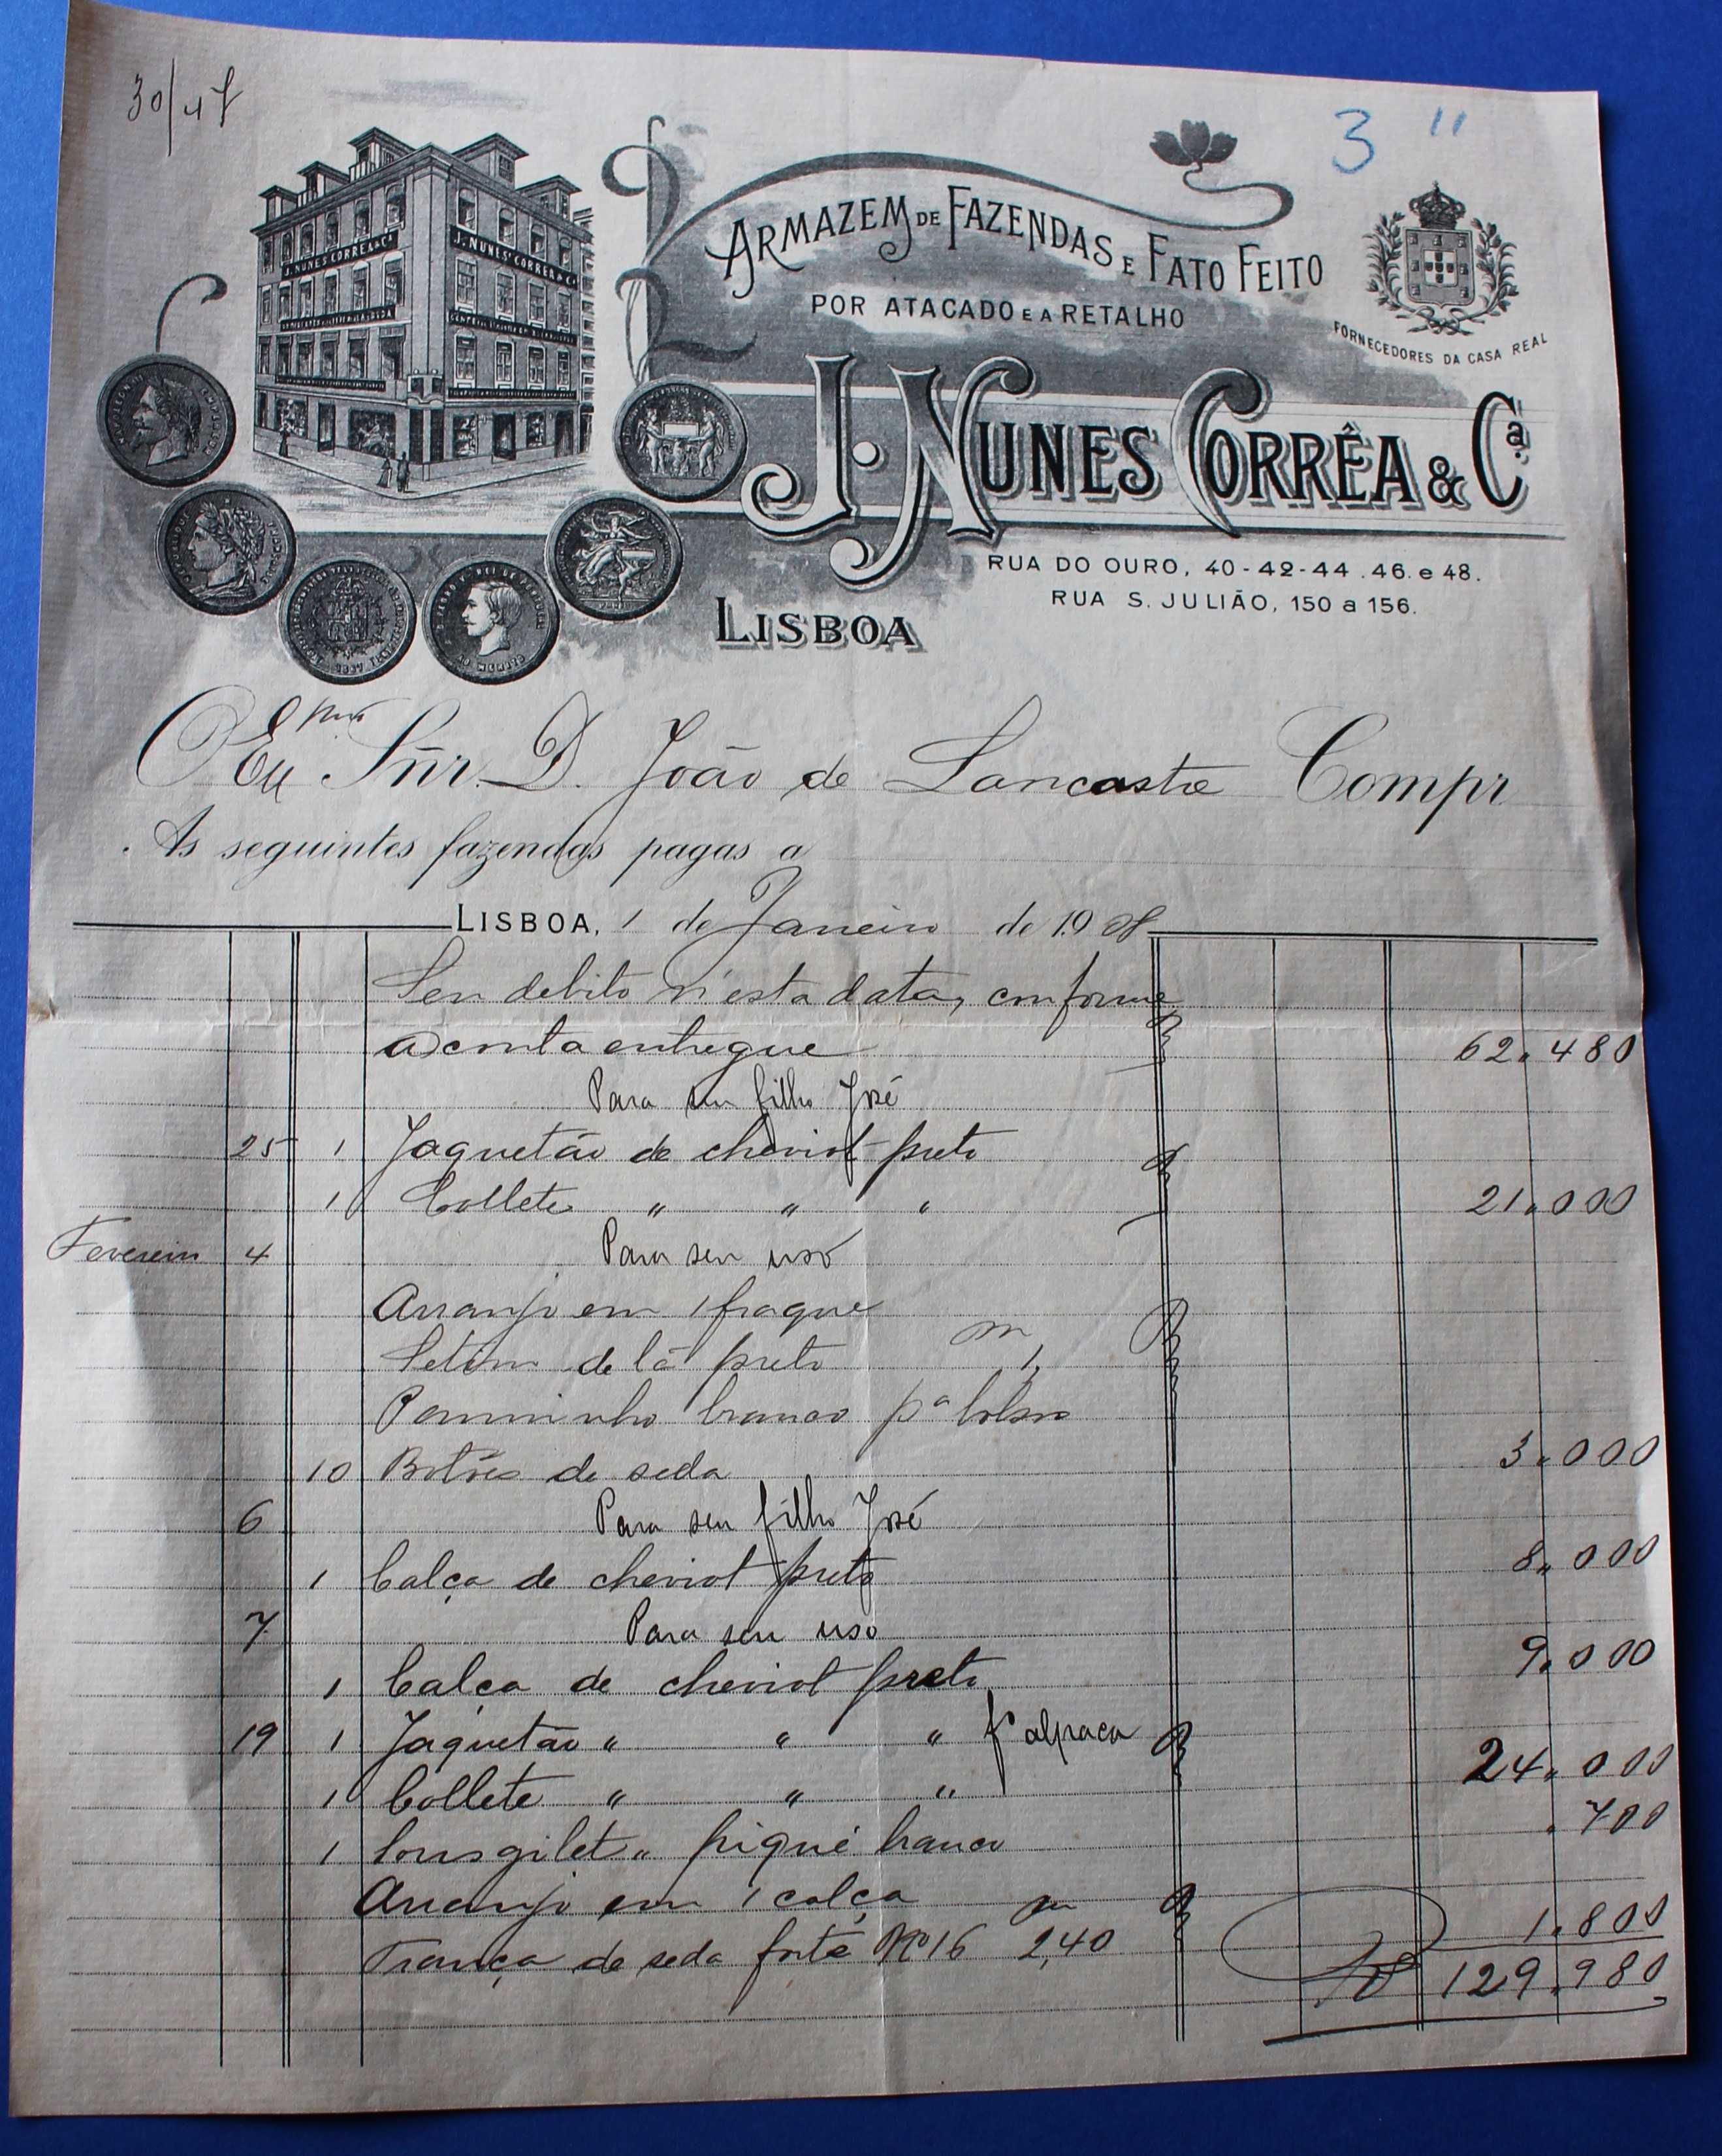 30/47
3 "
ARMAZEM DE FAZENDAS E FATO FEITO
POR ATACADO E A RETALHO
FORNECEDORES DA CASA REAL
J. NUNES CORRÊA & Cª
J. NUNES CORRÊA & Cª
J. NUNES CORRÊA & Cª.
RUA DO OURO, 40-42-44.46.e 48.
RUA S. JULIÃO, 150 a 156.
LISBOA
O Exmo Snr. D. João de Lancastre Compr
As seguintes fazendas pagas a
LISBOA, 1 de Janeiro de 1908
Seu debito n'esta data, conforme
a conta entregue 62.480
Para seu filho José
25 1 Jaquetão de cheviot preto
1 Collete " " " 21.000
Fevereiro 4 Para seu uso
Arranjo em 1 fraque
Setim de lã preto m 1,
Panninho branco pª bolsos
10 Botões de seda 3.000
6 Para seu filho José
1 Calça de cheviot preto 8.000
7 Para seu uso
1 Calça de cheviot preto 9.000
19 1 Jaquetão " " " fº alpaca
1 Collete " " " 24.000
1 " piqué branco .700
Arranjo em 1 calça
Trança de seda forte Nº 16 m 2,40 1.800
129.980